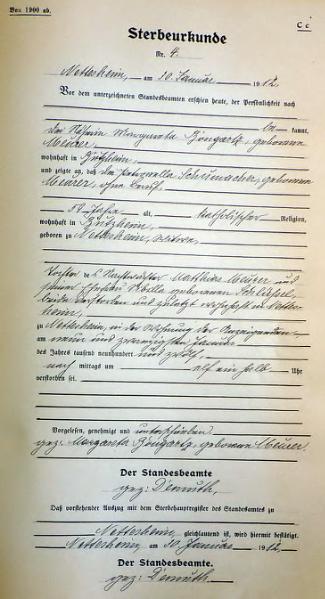 Von 1900 ab.
C c
Sterbeurkunde
Nr. 4.
Nettersheim, am 30. Januar 1912.
Vor dem unterzeichneten Standesbeamten erschien heute, der Persönlichkeit nach
be kannt,
die Näherin Margareta Bongartz, geborenen
Meurer,
wohnhaft in
und zeigte an, daß die Petronella Schumacher, geborenen
Meurer, ohne Beruf,
Jahre alt, katholischer Religion,
wohnhaft in
geboren zu Nettersheim, Witwe,
Tochter des Matthias Meurer und
seiner Ehefrau Sibilla geborenen
beide verstorben und zuletzt wohnhaft in Netters-
heim,
zu Nettersheim, in der Wohnung der Anzeigenden,
am neun und zwanzigsten Januar
des Jahres tausend neunhundert und zwölf,
nach mittags um elf ein halb Uhr
verstorben sei.
Vorgelesen, genehmigt und unterschrieben
gez: Margareta Bongartz, geborenen Meurer.
Der Standesbeamte
gez: Demuth.
Daß vorstehender Auszug mit dem Sterbehauptregister des Standesamtes zu
Nettersheim gleichlautend ist, wird hiermit bestätigt.
Nettersheim, am 30. Januar 1912.
Der Standesbeamte.
gez: Demuth.